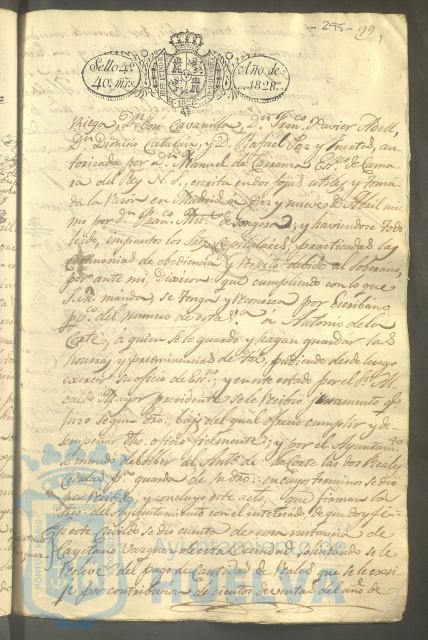 - 295 - 29
Sello 4º 40 mrs
Año de 1828.
1828
Riega, Dn José Cavanilla, Dn Franco Xavier Adell,
Dn Dionisio Catalan, y D. Rafael Paz y Fuertes, au-
torizada por Dn Manuel de Esnno de Cama
ra del Rey N. S., escrita en dos fojas utiles, y toma
da la razon en Madrid, a diez y nueve de Abril mi
mo por Dn Franco de Gongora; y haviendose todo
leido, impuestos los Sres Capitulares, practicadas las
ceremonias de obediencia y respeto debido al Soberano,
por ante mi, Dixeron: que cumpliendo con lo que
S. M. manda se tenga y reconozca por Escribano
ppco del numero de esta Va a Antonio de la
Corte, a quien se le guarde y hagan guardar las
honras, y preheminencias de tal, pudiendo desde luego
exercer su oficio de Esno; y en este estado por el Sr Al
calde Mayor presidente se le recibio juramento q.
hizo segun dro. bajo del qual ofrecio cumplir y de-
sempeñar dho. oficio fielmente; y por el Ayuntamto
se mando debolber al Anto de la Corte las dos Reales
Cedulas pa guarda de su dro.: en cuyos terminos se dio
por y concluyo este acto, que firmaron los
Sres del Ayuntamiento con el interesado, de que doy fe=
En este Cavildo se dio cuenta de una instancia de
Cayetano Vazquez de esta Vecindad solicitando se le
releve del pago de cantidad de reales que se le exi
je por contribucion de cientos de ventas del año de
HUELVA